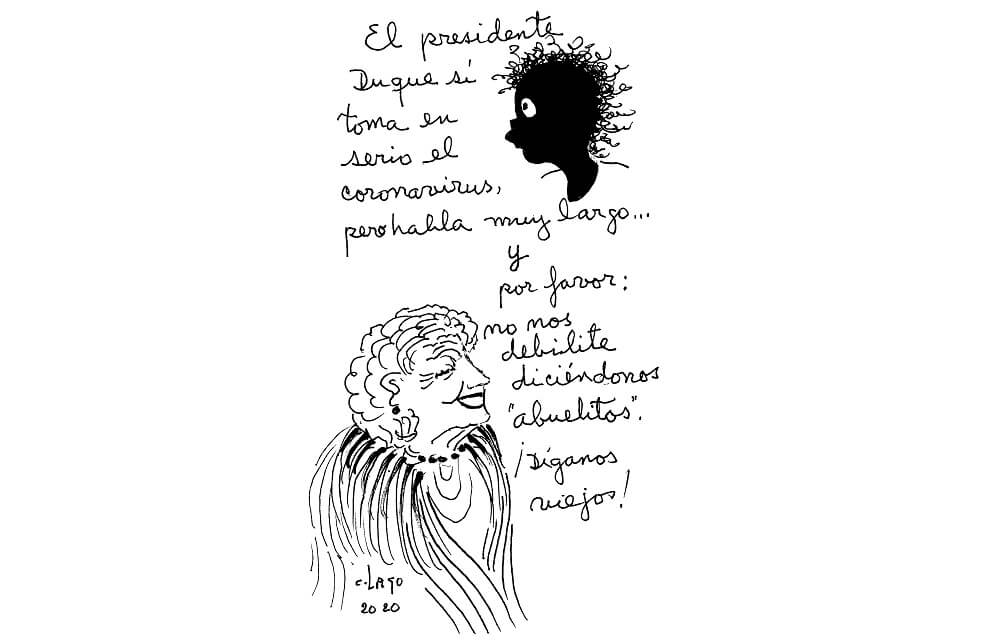 El presidente
Duque sí
toma en
serio el
coronavirus,
pero habla muy largo...
y
por favor:
no nos
debilite
diciéndonos
"abuelitos".
¡Díganos
viejos!
C. LAGO
2020